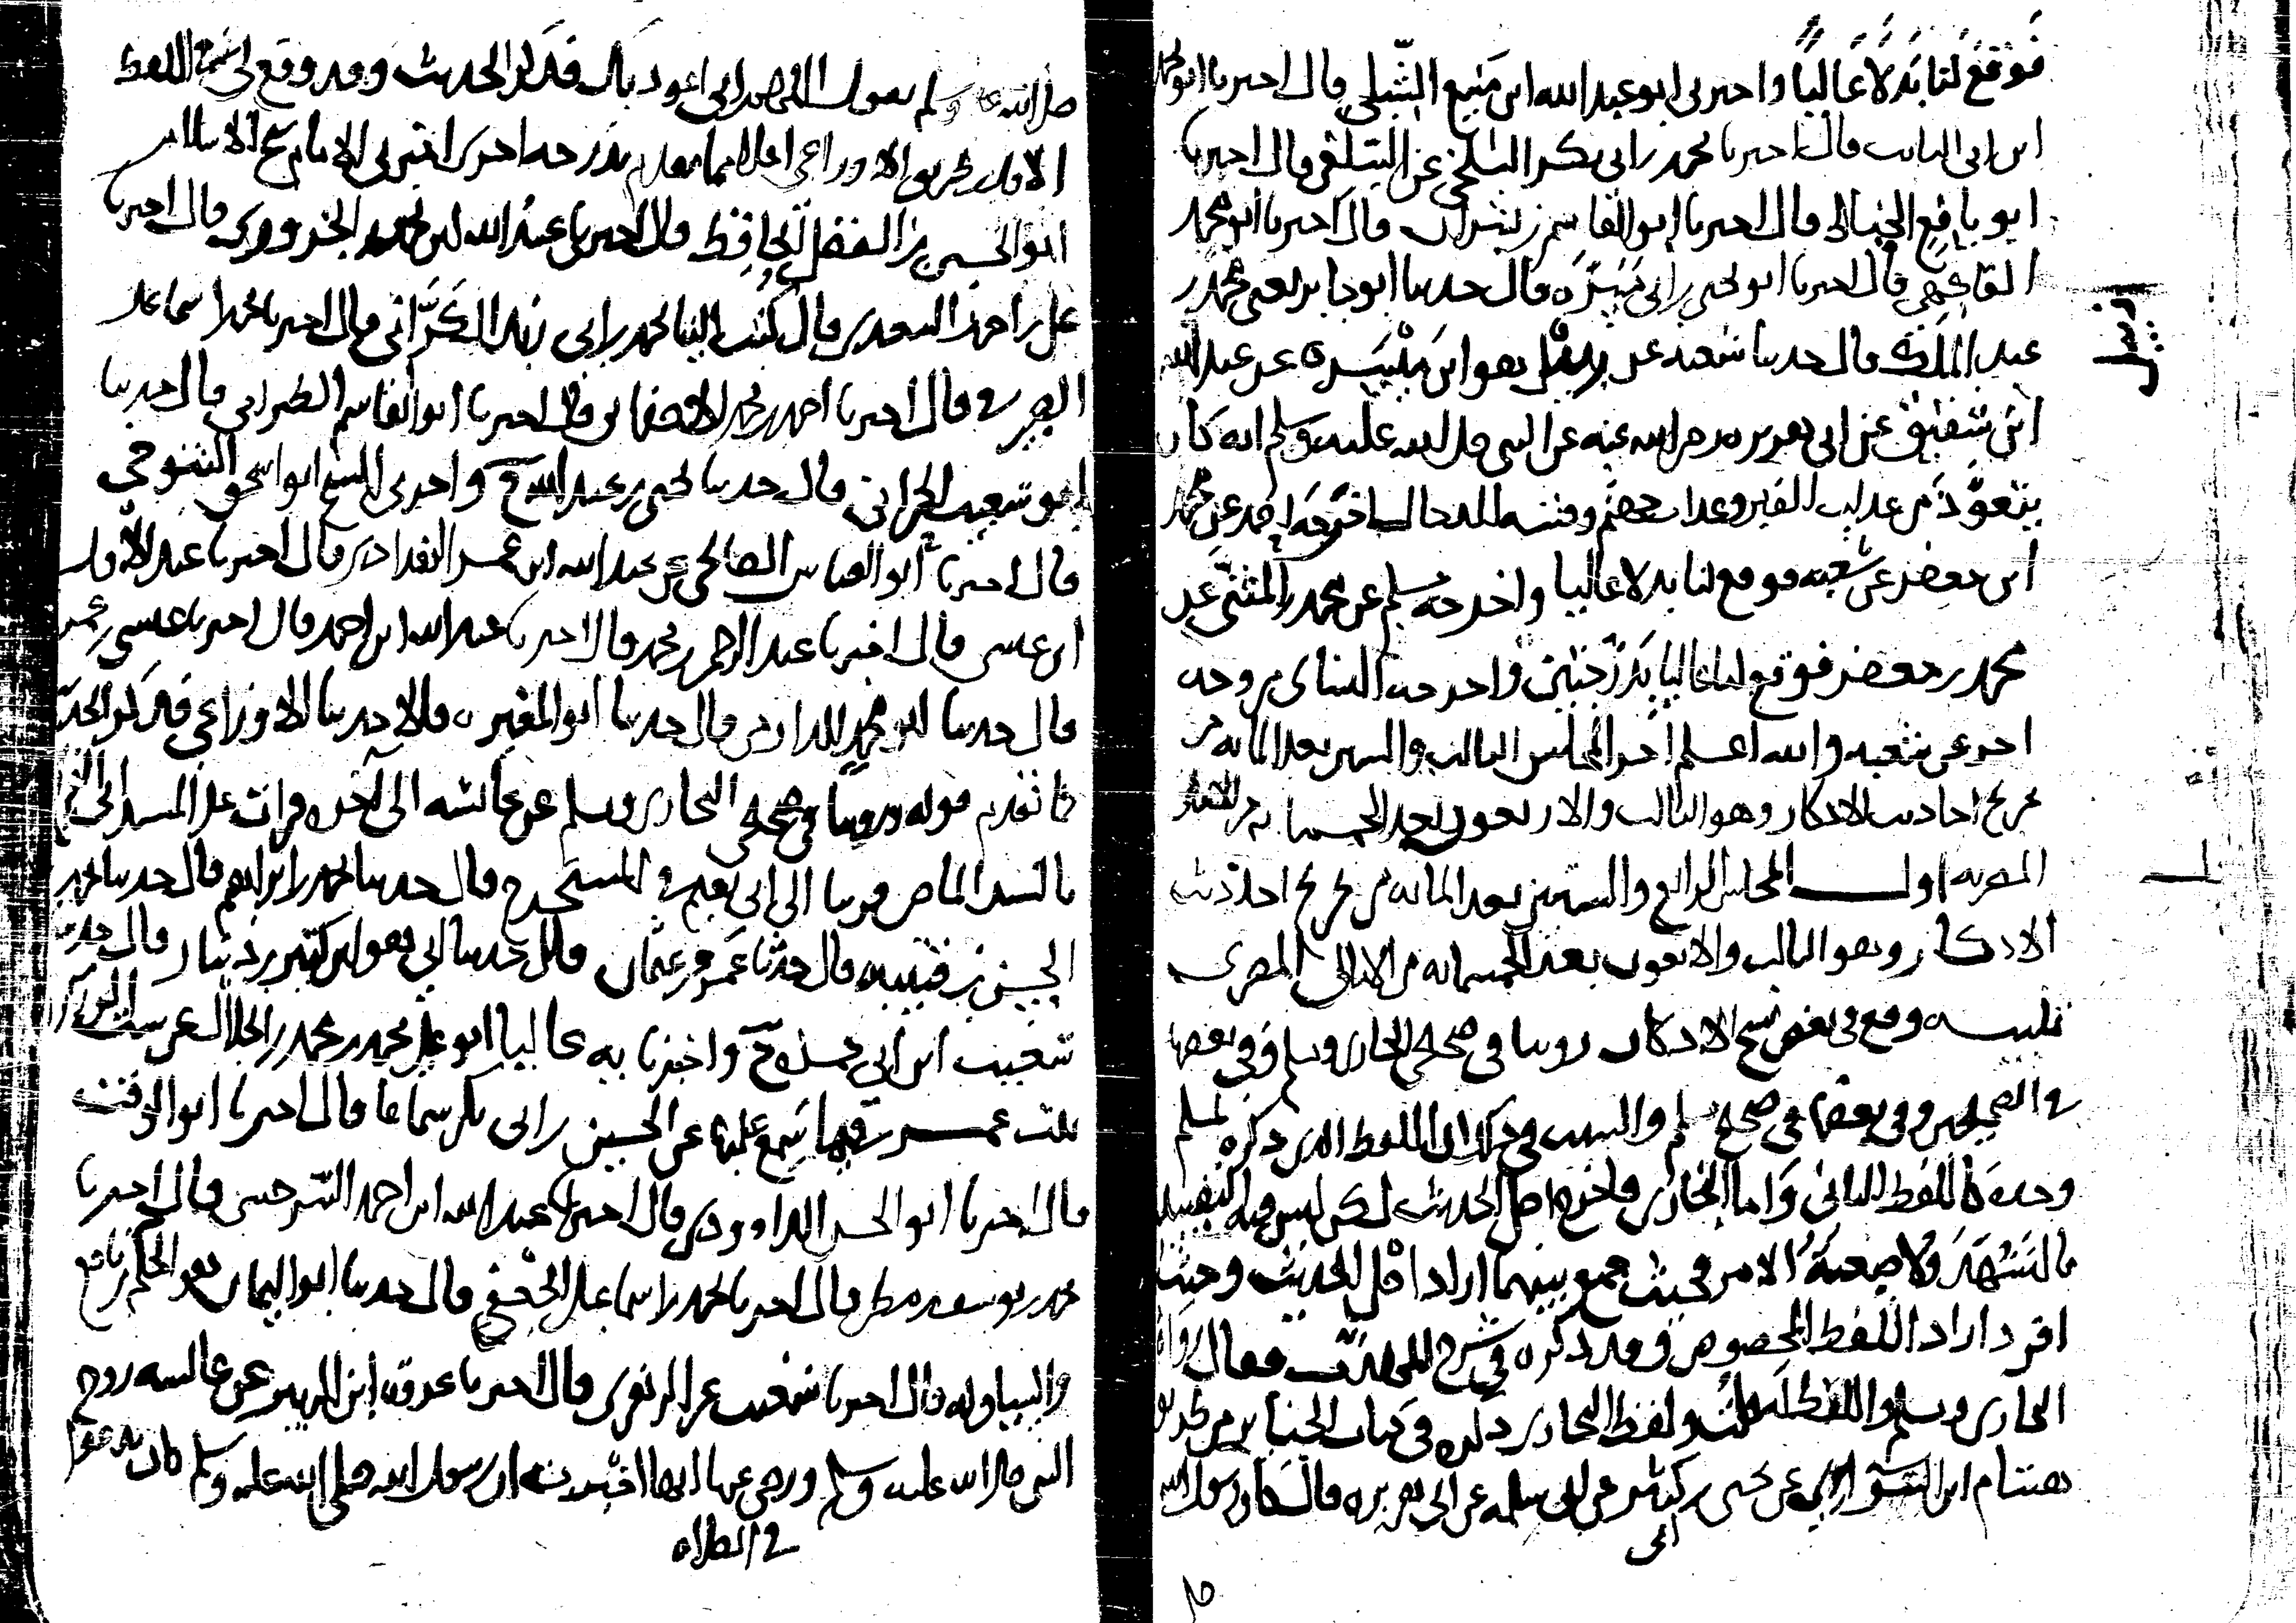 فوقع لنا بدلا عاليا واخبرني ابو عبد الله ابن منيع الشبلي قال اخبرنا ابو محمد
ابن ابي التائب قال اخبرنا محمد بن ابي بكر البلخي عن السلفي قال اخبرنا
ابو ياقوت قال اخبرنا ابو القاسم بن بشران قال اخبرنا ابو محمد
الفاكهي قال اخبرنا ابو يحيى بن ابي مسرة قال حدثنا ابو جابر يعني محمد بن
عبد الملك قال حدثنا شعبة عن بديل هو ابن ميسرة عن عبد الله
ابن شقيق عن ابي هريرة رضي الله عنه عن النبي صلى الله عليه وسلم انه كان
يتعوذ من عذاب القبر وعذاب جهنم وفتنة الدجال اخرجه احمد عن محمد
ابن جعفر عن شعبة فوقع لنا بدلا عاليا واخرجه مسلم عن محمد بن المثنى عن
محمد بن جعفر فوقع لنا عاليا بدرجتين واخرجه النسائي من وجه
اخر عن شعبة والله اعلم اخر المجلس الثالث والستين بعد المائة من
تخريج احاديث الاذكار وهو الثالث والاربعون بعد الخمسمائة من الامالي
المصرية اول المجلس الرابع والستين بعد المائة من تخريج احاديث
الاذكار وهو الثالث والاربعون بعد الخمسمائة من الامالي المصرية
تنبيه وقع في بعض نسخ الاذكار روينا في صحيحي البخاري ومسلم وفي بعضها
في الصحيحين وفي بعضها في صحيح مسلم والسبب في ذلك ان اللفظ الذي ذكره لمسلم
وحده كاللفظ الثاني واما البخاري فاخرج اصل الحديث لكن ليس فيه التقييد
بالتشهد ولا صيغة الامر فحيث جمع بينهما اراد اصل الحديث وحيث
افرد اراد اللفظ المخصوص وقد ذكره في شرح المهذب فقال رواه
البخاري ومسلم واللفظ له قلت ولفظ البخاري ذكره في كتاب الجنائز من طريق
هشام الدستوائي عن يحيى بن ابي كثير عن ابي سلمة عن ابي هريرة قال كان رسول الله
صلى الله عليه وسلم يقول اللهم اني اعوذ بك فذكر الحديث وقد وقع لي اتم اللفظ
الاول من طريق الاوزاعي اعلا مما تقدم بدرجة اخرى اخبرني الامام شيخ الاسلام
ابو الفضل الحافظ قال اخبرنا عبد الله بن محمد قال اخبرنا
علي بن احمد السعدي قال كتب الينا محمد بن ابي زيد الكراني قال اخبرنا محمود بن اسماعيل
الصيرفي قال اخبرنا احمد بن محمد الاصفهاني قال اخبرنا ابو القاسم الطبراني قال حدثنا
ابو شعيب الحراني قال حدثنا يحيى بن عبد الله ح واخبرني الشيخ ابو اسحق التنوخي
قال اخبرنا ابو العباس الصالحي عن عبد الله ابن عمر البغدادي قال اخبرنا عبد الاول
ابن عيسى قال اخبرنا عبد الرحمن بن محمد قال اخبرنا عبد الله ابن احمد قال اخبرنا عيسى بن عمر
قال حدثنا ابو محمد الدارمي قال حدثنا ابو المغيرة قالا حدثنا الاوزاعي فذكر الحديث
كما تقدم قوله وروينا في صحيحي البخاري ومسلم عن عائشة الى اخره قرات على
بالسند الماضي قريبا الى ابي نعيم في المستخرج قال حدثنا محمد بن ابراهيم قال حدثنا محمد بن
الحسن بن قتيبة قال حدثنا عمرو بن عثمان قال حدثنا ابي هو ابن كثير بن دينار قال حدثنا
شعيب ابن ابي حمزة ح واخبرنا به عاليا ابو علي محمد بن محمد بن الجلال عن ست الوزراء
بنت عمر سماعا عليها عن الحسين بن ابي بكر سماعا قال اخبرنا ابو الوقت
قال اخبرنا ابو الحسن الداوودي قال اخبرنا عبد الله ابن احمد السرخسي قال اخبرنا
محمد بن يوسف بن مطر قال اخبرنا محمد بن اسماعيل الجعفي قال حدثنا ابو اليمان هو الحكم بن نافع
قال اخبرنا شعيب عن الزهري قال اخبرنا عروة ابن الزبير عن عائشة زوج
النبي صلى الله عليه وسلم ورضي عنها انها اخبرته ان رسول الله صلى الله عليه وسلم كان يدعوا
في الصلاه